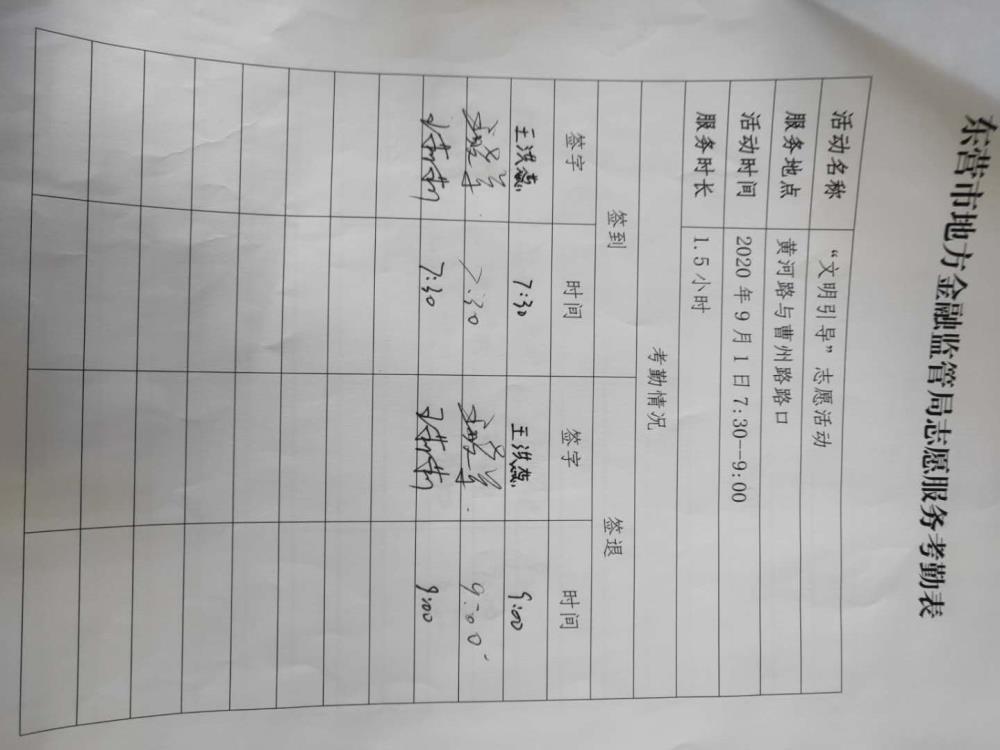 东营市地方金融监管局志愿服务考勤表
活动名称 “文明引导”志愿活动
服务地点 黄河路与曹州路路口
活动时间 2020年9月1日7:30--9:00
服务时长 1.5小时
考勤情况
签到 签退
签字 时间 签字 时间
王洪燕 7:30 王洪燕 9:00
7:30 9:00
7:30 9:00